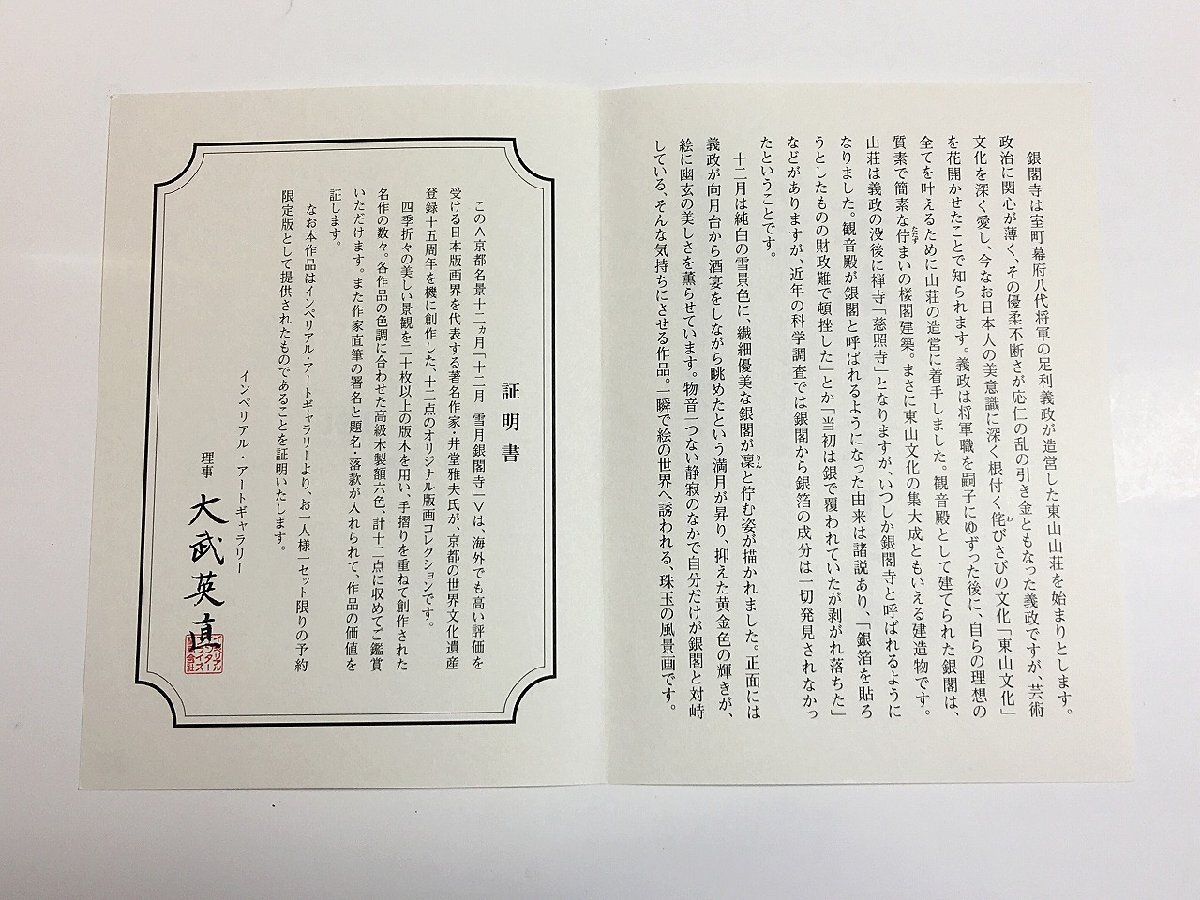 銀閣寺は室町幕府八代将軍の足利義政が造営した東山山荘を始まりとします。
政治に関心が薄く、その優柔不断さが応仁の乱の引き金ともなった義政ですが、芸術
文化を深く愛し、今なお日本人の美意識に深く根付く侘びさびの文化「東山文化」
を花開かせたことで知られます。義政は将軍職を嗣子にゆずった後に、自らの理想の
全てを叶えるために山荘の造営に着手しました。観音殿として建てられた銀閣は、
質素で簡素な佇まいの楼閣建築。まさに東山文化の集大成ともいえる建造物です。
山荘は義政の没後に禅寺「慈照寺」となりますが、いつしか銀閣寺と呼ばれるように
なりました。観音殿が銀閣と呼ばれるようになった由来は諸説あり、「銀箔を貼ろ
うとしたものの財政難で頓挫した」とか「当初は銀で覆われていたが剥がれ落ちた」
などがありますが、近年の科学調査では銀閣から銀箔の成分は一切発見されなかっ
たということです。
十二月は純白の雪景色に、繊細優美な銀閣が凜と佇む姿が描かれました。正面には
義政が向月台から酒宴をしながら眺めたという満月が昇り、抑えた黄金色の輝きが、
絵に幽玄の美しさを薫らせています。物音一つない静寂のなかで自分だけが銀閣と対峙
している、そんな気持ちにさせる作品。一瞬で絵の世界へ誘われる、珠玉の風景画です。
証明書
この〈京都名景十二ヵ月「十二月 雪月銀閣寺」〉は、海外でも高い評価を
受ける日本版画界を代表する著名作家・井堂雅夫氏が、京都の世界文化遺産
登録十五周年を機に創作した、十二点のオリジナル版画コレクションです。
四季折々の美しい景観を二十枚以上の版木を用い、手摺りを重ねて創作された
名作の数々。各作品の色調に合わせた高級木製額六色、計十二点に収めてご鑑賞
いただけます。また作家直筆の署名と題名・落款が入れられて、作品の価値を
証します。
なお本作品はインペリアル・アートギャラリーより、お一人様一セット限りの予約
限定版として提供されたものであることを証明いたします。
インペリアル・アートギャラリー
理事 大武英直